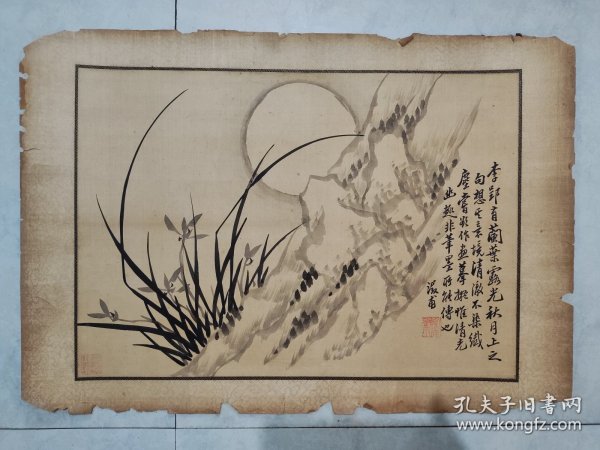 李郢有蘭葉露光秋月上之
句想其意境清澈不染纖
塵嘗欲作画摹擬惟清光
幽趣非筆墨所能傳也
溆甫
孔夫子旧書网
www.kongfz.com